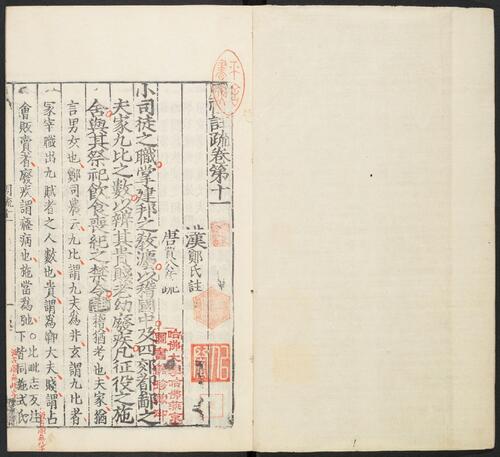 註疏卷第十一
漢鄭氏註
唐賈公彥疏
小司徒之職掌建邦之教灋以稽國中及四郊都鄙之
夫家九比之數以辨其貴賤老幼廢疾凡征役之施
舍與其祭祀飲食喪紀之禁令
稽猶考也夫家猶
言男女也鄭司農云九比謂九夫為井玄謂九比者
冢宰職出九賦者之人數也貴謂為卿大夫賤謂占
會販賣者廢疾謂癃病也施當為弛